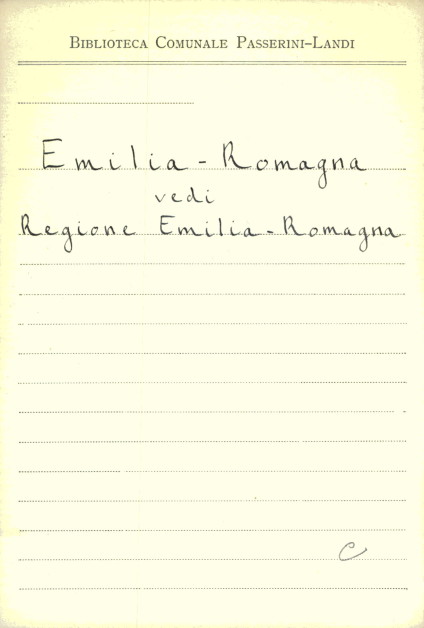 Biblioteca Comunale Passerini-Landi
Emilia - Romagna
vedi
Regione Emilia - Romagna
C